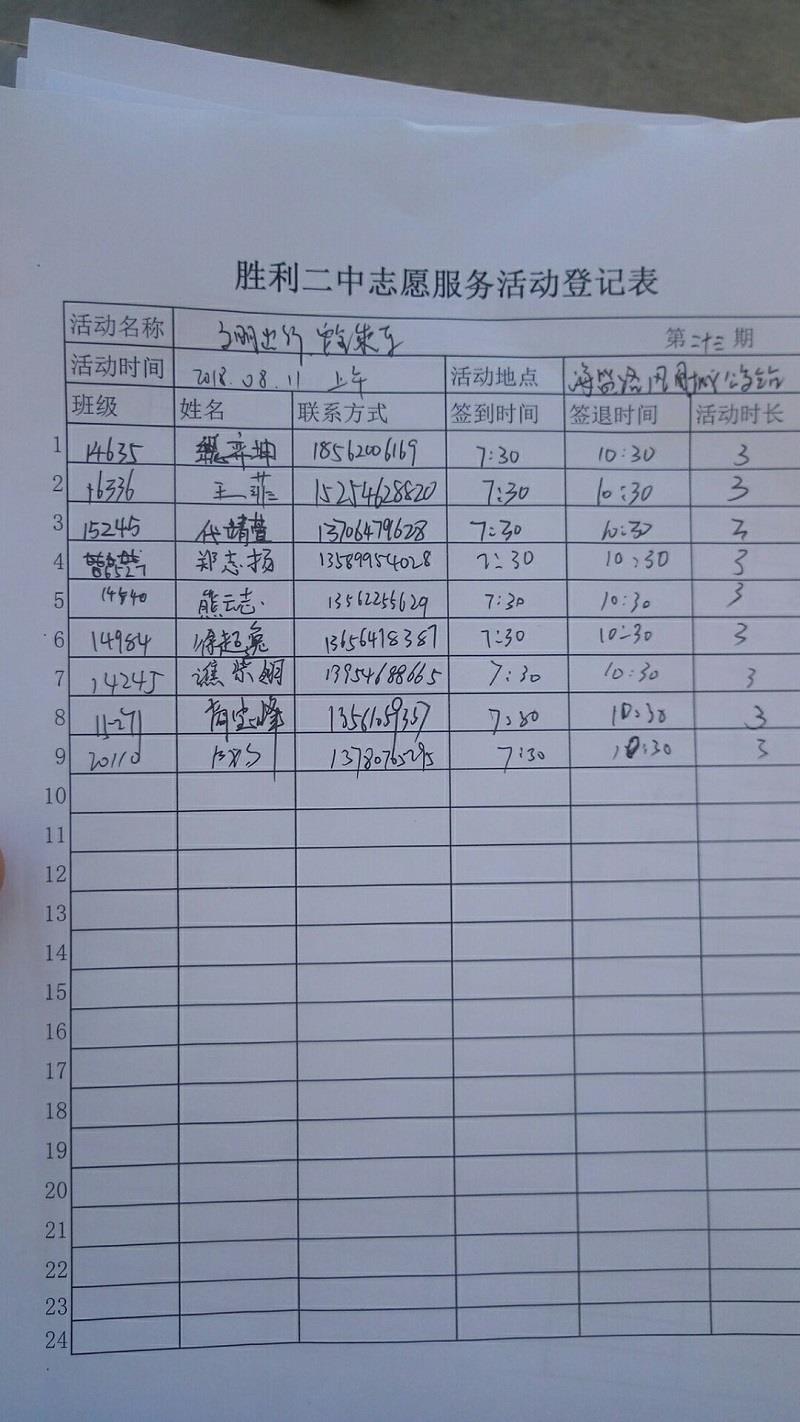 胜利二中志愿服务活动登记表
活动名称 文明出行、安全乘车 第二十三期
活动时间 2018.08.11 上午 活动地点
班级 姓名 联系方式 签到时间 签退时间 活动时长
1 14635 18562006169 7:30 10:30 3
2 16336 王菲 15254628820 7:30 10:30 3
3 15245 代靖萱 13706479628 7:30 10:30 3
4 86527 郑志扬 13589954028 7:30 10:30 3
5 14840 熊云志 13562255629 7:30 10:30 3
6 14984 13656478387 7:30 10:30 3
7 14245 13954688665 7:30 10:30 3
8 11271 13561059357 7:30 10:30 3
9 20110 13780765295 7:30 10:30 3
10
11
12
13
14
15
16
17
18
19
20
21
22
23
24